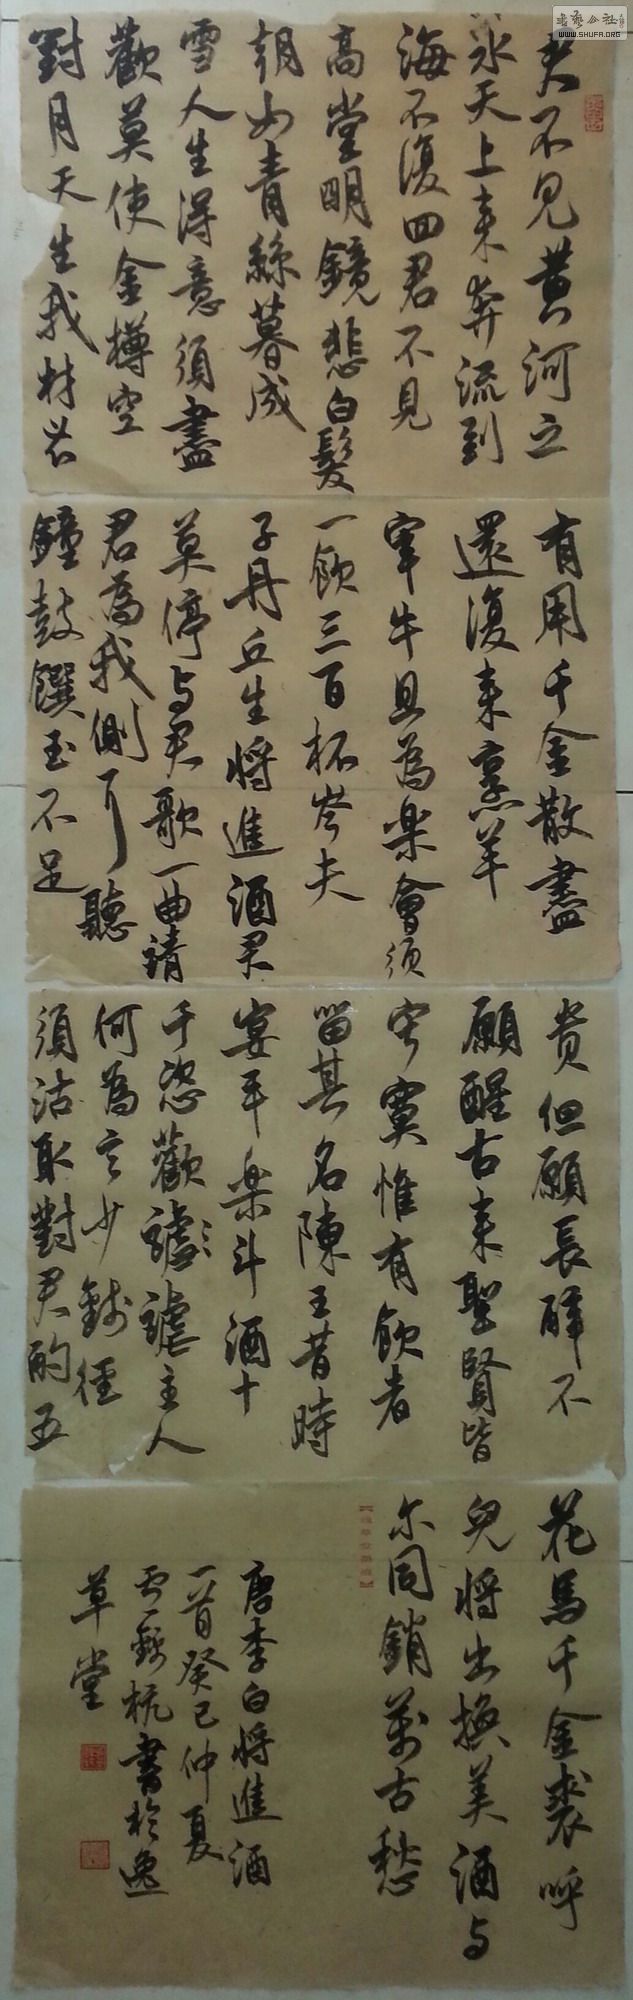 書藝公社
WWW.SHUFA.ORG
君不見黃河之
水天上来奔流到
海不復回君不見
高堂明鏡悲白髮
朝如青絲暮成
雪人生得意須盡
歡莫使金樽空
對月天生我材必
有用千金散盡
還復来烹羊
宰牛且為楽會須
一飲三百杯岑夫
子丹丘生將進酒君
莫停与君歌一曲請
君為我側耳聽
鐘鼓饌玉不足
贵但願長醉不
願醒古来聖賢皆
寂寞惟有飲者
留其名陳王昔時
宴平楽斗酒十
千恣歡謔謔主人
何為言少錢徑
須沽取對君酌五
花馬千金裘呼
兒將出換美酒与
尔同銷萬古愁
唐李白將進酒
一首癸巳仲夏
書於逸
草堂